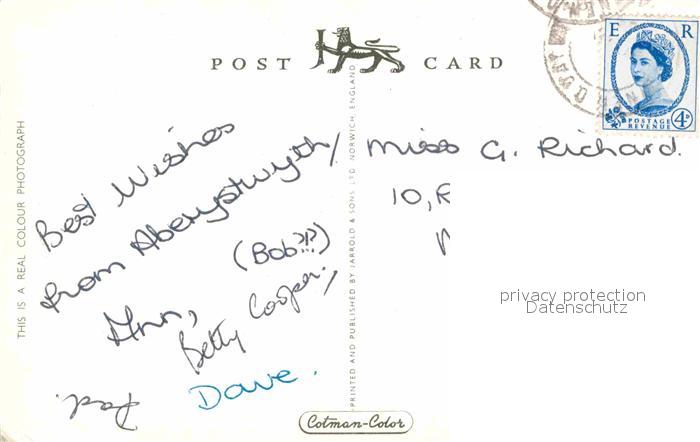 POST CARD
E R
POSTAGE
REVENUE
4D
THIS IS A REAL COLOUR PHOTOGRAPH
Best Wishes
from Aberystwyth
(Bob?!?)
Ann,
Betty Cooper,
Dave.
PRINTED AND PUBLISHED BY JARROLD & SONS LTD. NORWICH, ENGLAND
Miss G. Richard.
10,
privacy protection
Datenschutz
Cotman-Color